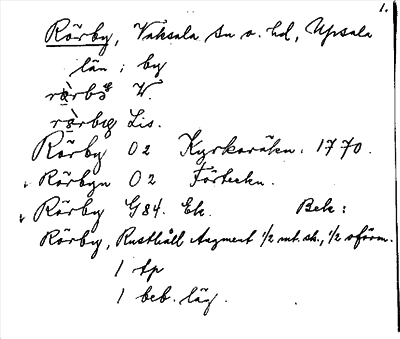 1.
Rörby, Vaksala sn o. hd, Upsala
län ; by
W.
Lis.
Rörby O2 Kyrkoräkn. 1770.
Rörbyn O2 Förteckn.
Rörby G84. Ek. Bek:
Rörby, Rusthåll Augment 1/2 mt. sk., 1/2 oförm.
1 tp
1 beb. läg.